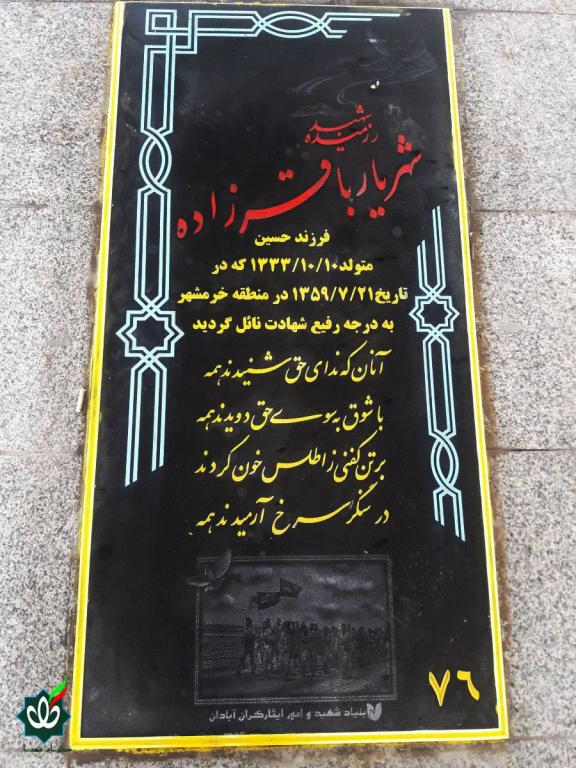 شهید
رزمنده
شهریار باقرزاده
فرزند حسین
متولد ۱۳۳۳/۱۰/۱۰ که در
تاریخ ۱۳۵۹/۷/۲۱ در منطقه خرمشهر
به درجه رفیع شهادت نائل گردید
آنان که ندای حق شنیدند همه
با شوق به سوے حق دویدند همه
بر تن کفنی ز اطلس خون کردند
در سنگر سرخ آرمیدند همه
بنیاد شهید و امور ایثارگران آبادان
۷۶